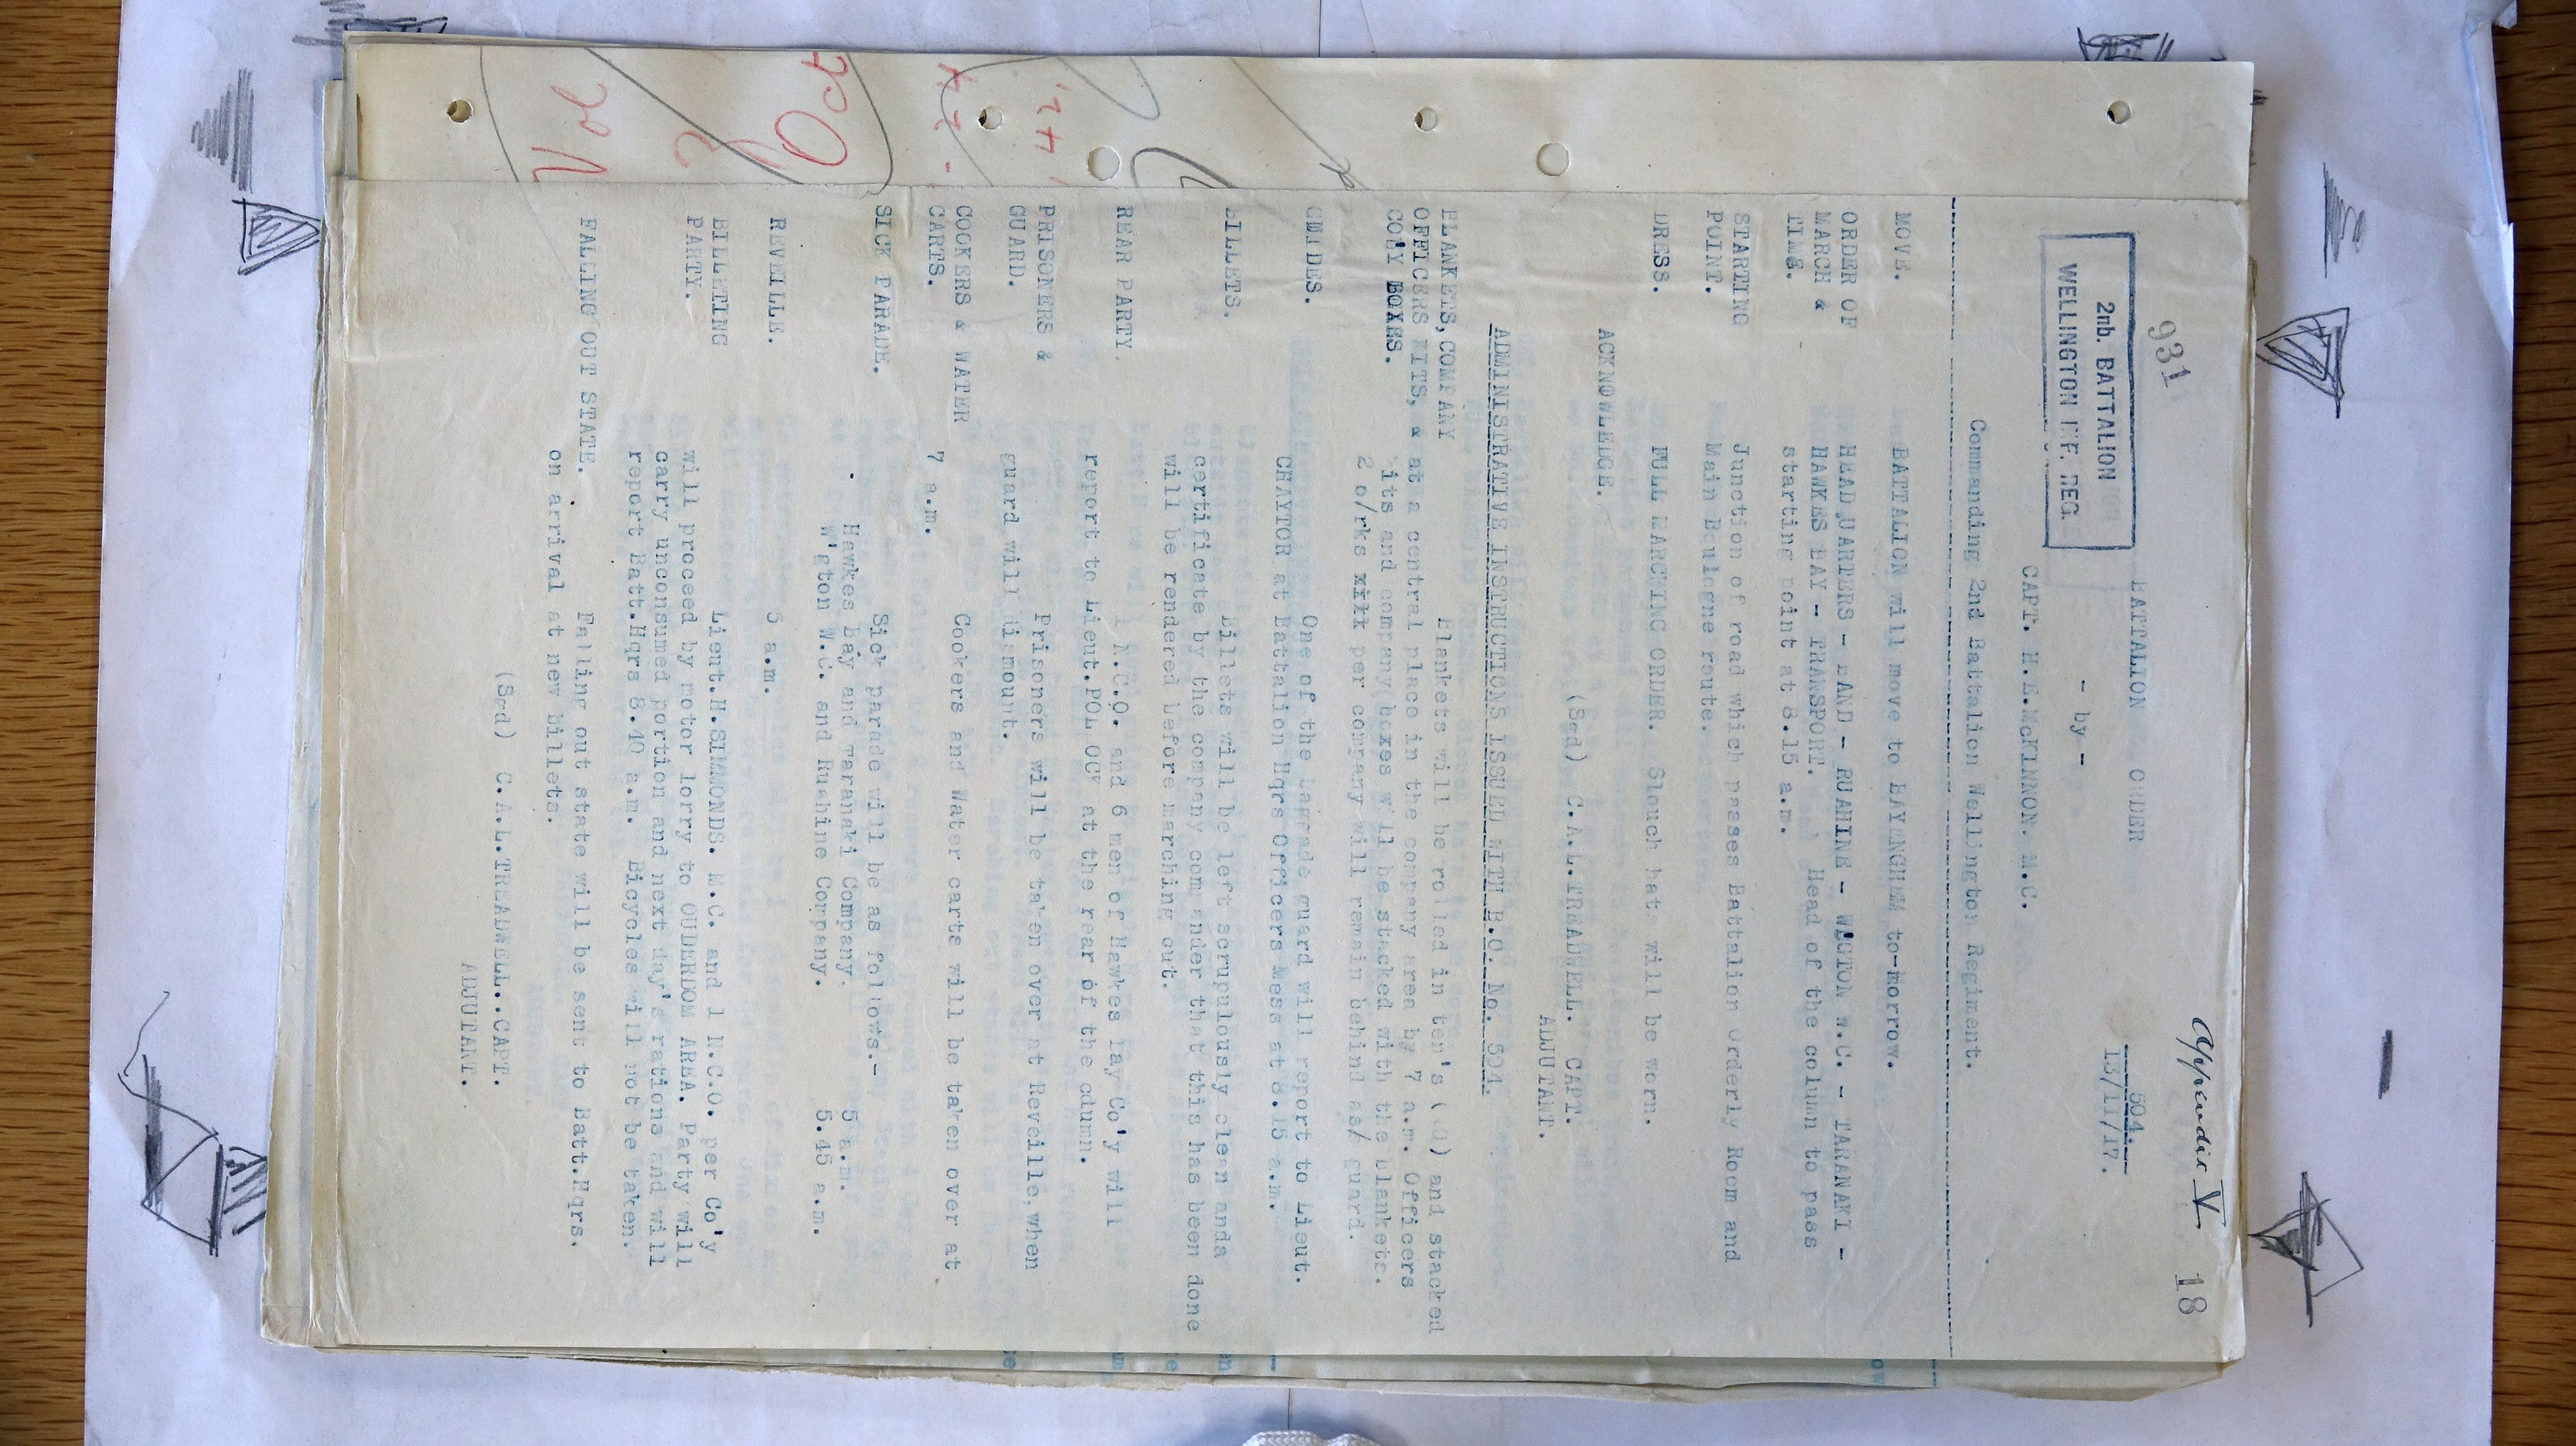 Appendix V 18
931
2nb. BATTALION
WELLINGTON INF. REG.
BATTALION ORDER 504.
13/11/17.
- by -
CAPT. H.E.McKINNON. M.C.
Commanding 2nd Battalion Wellington Regiment.
MOVE. BATTALION will move to BAYENGHEM to-morrow.
ORDER OF HEADQUARTERS - BAND - RUAHINE - W'GTON W.C. - TARANAKI -
MARCH & HAWKES BAY - TRANSPORT. Head of the column to pass
TIME. starting point at 8.15 a.m.
STARTING Junction of road which passes Battalion Orderly Room and
POINT. Main Boulogne route.
DRESS. FULL MARCHING ORDER. Slouch hats will be worn.
ACKNOWLEDGE.
(Sgd) C.A.L.TREADWELL. CAPT.
ADJUTANT.
ADMINISTRATIVE INSTRUCTIONS ISSUED WITH B.O. No. 504.
BLANKETS,COMPANY Blankets will be rolled in ten's (10) and stacked
OFFICERS KITS, & at a central place in the company area by 7 a.m. Officers
CO'Y BOXES. kits and company boxes will be stacked with the blankets.
2 o/rks xixk per company will remain behind as/ guard.
GUIDES. One of the baggage guard will report to Lieut.
CHAYTOR at Battalion Hqrs Officers Mess at 8.15 a.m.
BILLETS. Billets will be left scrupulously clean anda
certificate by the company commander that this has been done
will be rendered before marching out.
REAR PARTY. 1 N.C.O. and 6 men of Hawkes Bay Co'y will
report to Lieut.POLLOCK at the rear of the cdumn.
PRISONERS & Prisoners will be taken over at Reveille,when
GUARD. guard will dismount.
COOKERS & WATER Cookers and Water carts will be taken over at
CARTS. 7 a.m.
SICK PARADE. Sick parade will be as follows.-
Hawkes Bay and Taranaki Company. 5 a.m.
W'gton W.C. and Ruahine Company. 5.45 a.m.
REVEILLE. 5 a.m.
BILLETING Lieut.H.SIMMONDS. M.C. and 1 N.C.O. per Co'y
PARTY. will proceed by motor lorry to OUDERDOM AREA. Party will
carry unconsumed portion and next day's rations and will
report Batt.Hqrs 8.40 a.m. Bicycles will not be taken.
FALLING OUT STATE. Falling out state will be sent to Batt.Hqrs.
on arrival at new billets.
(Sgd) C.A.L.TREADWELL..CAPT.
ADJUTANT.